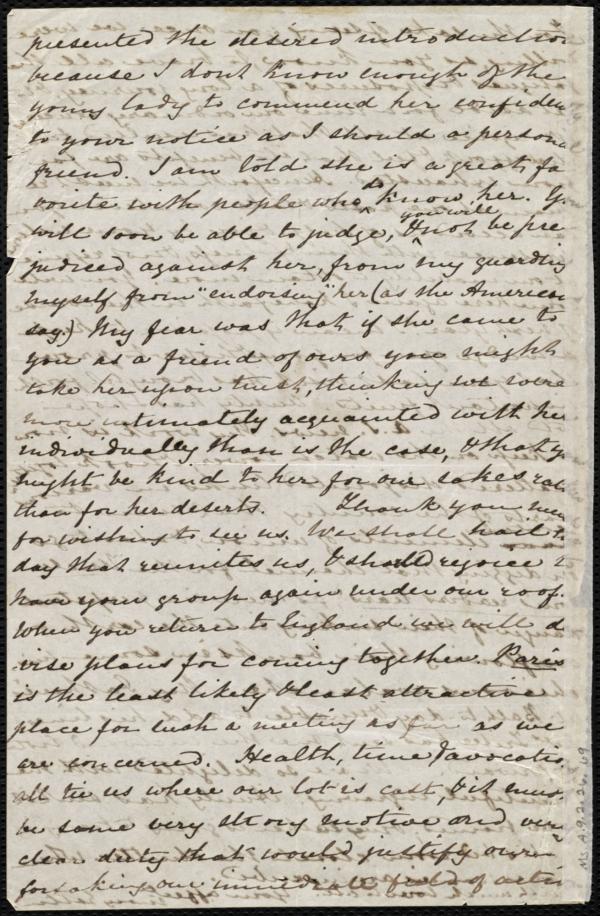 presented the desired introduction
because I dont know enough of the
young lady to commend her confiden
to your notice as I should a persona
friend. I am told she is a great fa
vorite with people who do know her. Yo
will soon be able to judge, & you will not be pre
judiced against her, from my guarding
myself from "endorsing" her (as the American
say.) My fear was that if she came to
you as a friend of ours you might
take her upon trust, thinking we were
more intimately acquainted with he
individually than is the case, & that y
might be kind to her for our sakes rath
than for her deserts. Thank you muc
for wishing to see us. We shall hail th
day that reunites us, & should rejoice t
have your group again under our roof.
When you return to England we will d
vise plans for coming together. Paris
is the least likely & least attractive
place for such a meeting as far as we
are concerned. Health, time & avocatio
all tie us where our lot is cast, & it mus
be some very strong motive and very
clear duty that would justify our
forsaking our immediate field of actio
Ms. A.9.2.26.49